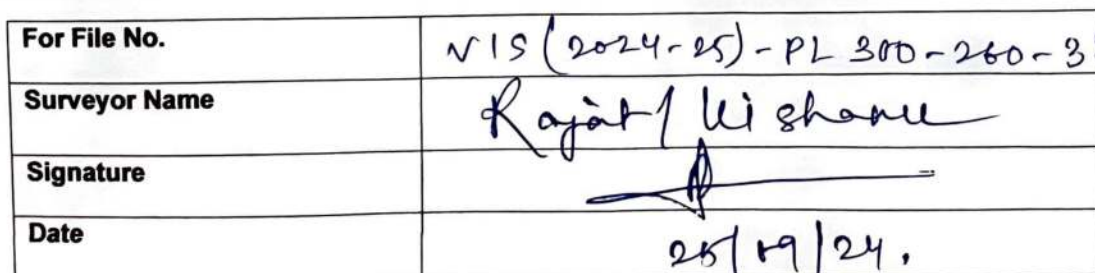 For File No. VIS (2024-25) - PL 300-260-3
Surveyor Name Rajat /
Signature
Date 25/09/24.